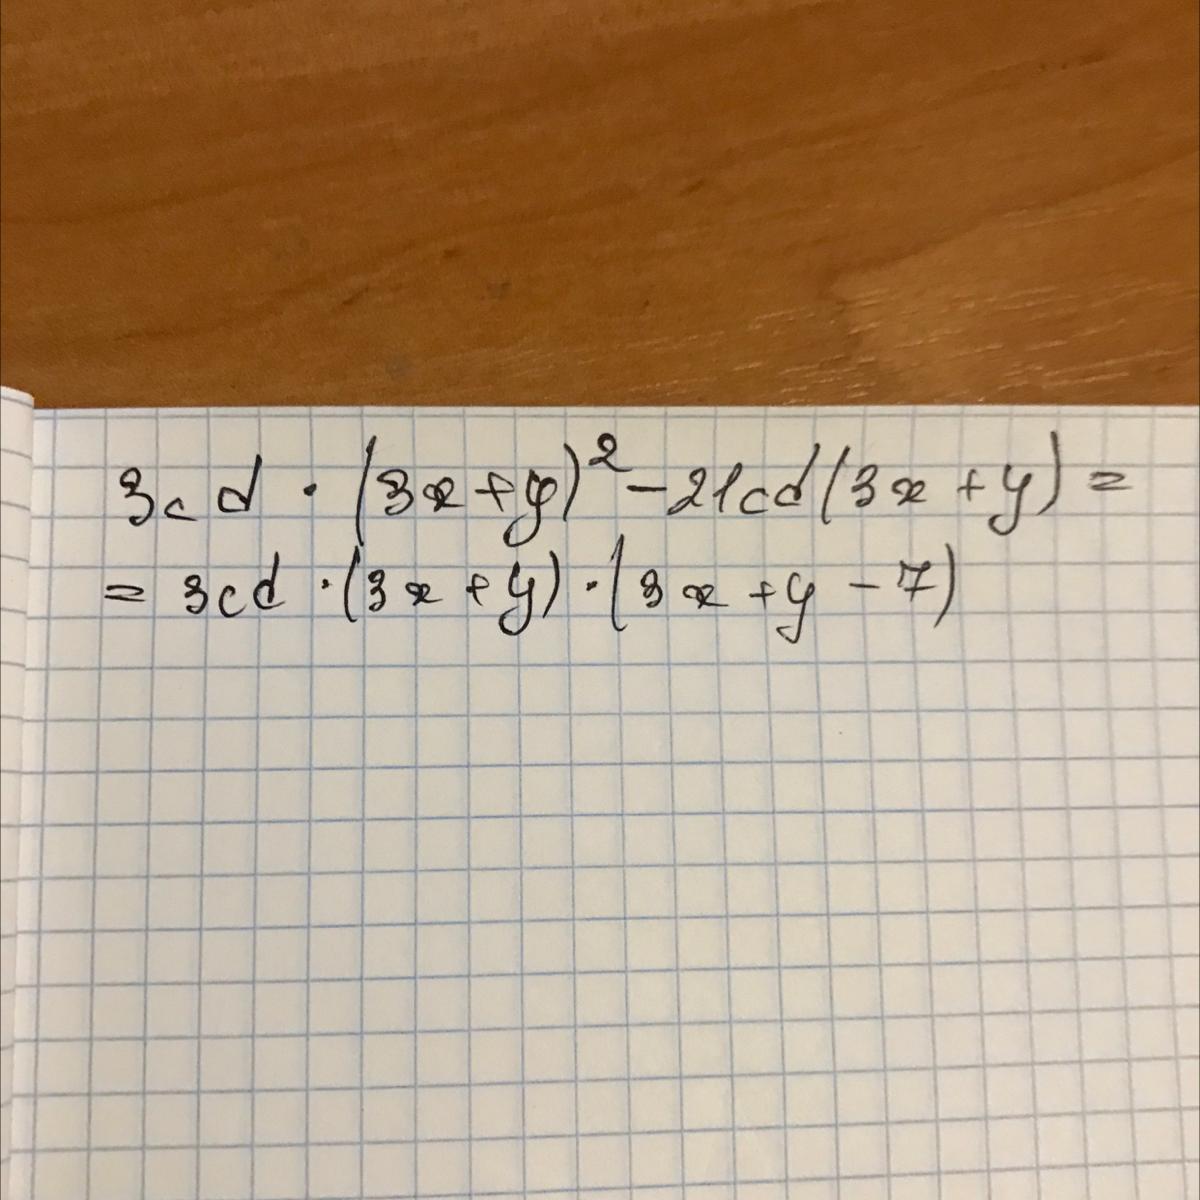 3cd · (3x+y)² - 21cd(3x+y) =
= 3cd · (3x+y) · (3x+y-7)